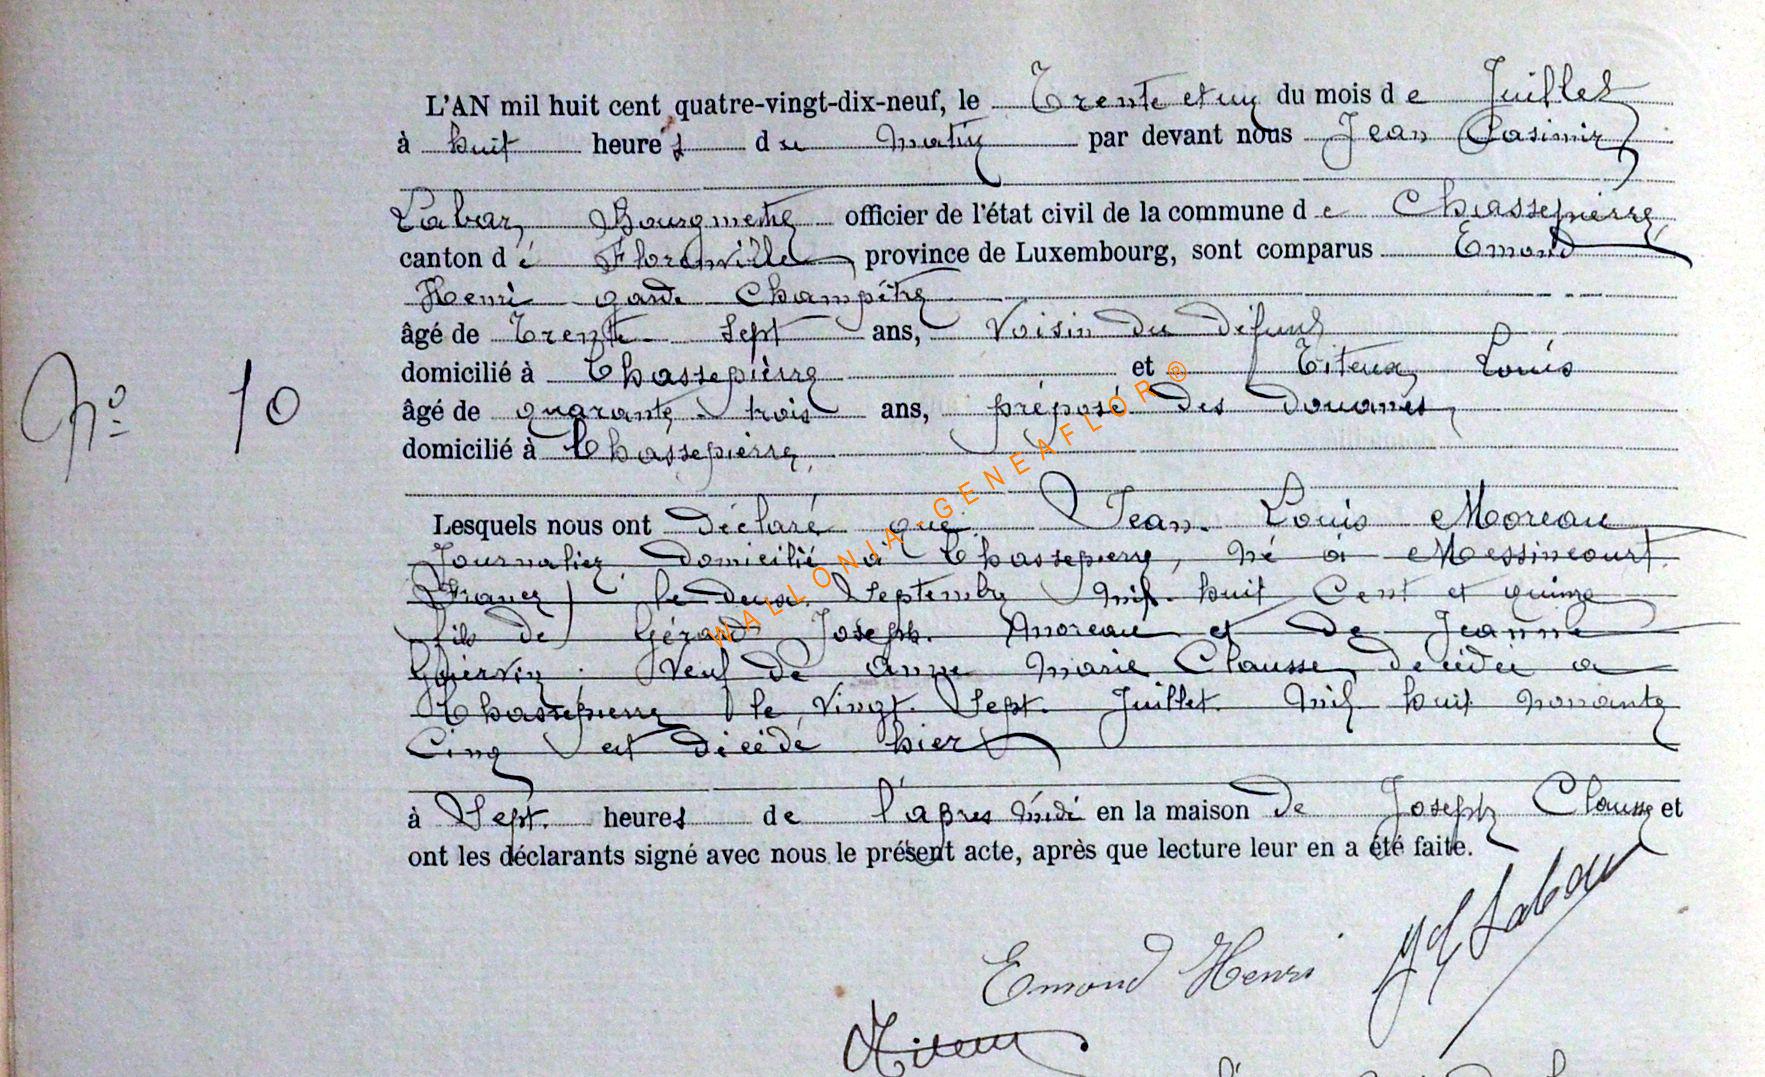 L'AN mil huit cent quatre-vingt-dix-neuf, le Trente et un du mois de Juillet
à huit heures du matin par devant nous Jean Casimir
Labar, Bourgmestre officier de l'état civil de la commune de Chassepierre,
canton de Florenville, province de Luxembourg, sont comparus Emond
Henri garde Champêtre
âgé de Trente Sept ans, Voisin du défunt
domicilié à Chassepierre et Titeux, Louis
N° 10
âgé de quarante trois ans, préposé des Douanes,
domicilié à Chassepierre,
Lesquels nous ont déclaré que Jean Louis Moreau
Journalier domicilié à Chassepierre, né à Messincourt
France) le deux Septembre Mil huit Cent et quinze
fils de Gérard Joseph Moreau et de Jeanne
Veuf de Anne Marie Clausse, décédée a
Chassepierre le Vingt Sept Juillet Mil huit nonante
Cinq est décédé hier
à Sept heures de l'apres midi en la maison de Joseph Clausse et
ont les déclarants signé avec nous le présent acte, après que lecture leur en a été faite.
Emond Henri
Titeux
WALLONIA-GENEAFLOR®